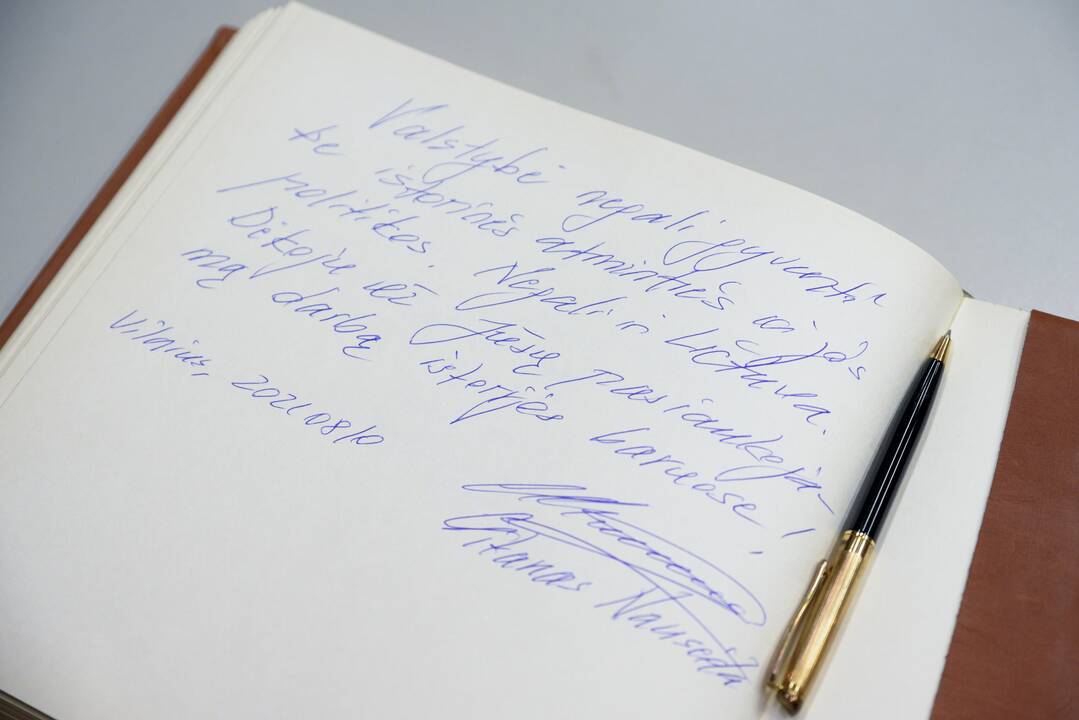 Valstybė negali gyventi
be istorinės atminties ir jos
politikos. Negali ir Lietuva.
Dėkoju už Jūsų pasiaukoja-
mą darbą istorijos baruose!
Vilnius, 20210810
Gitanas Nausėda